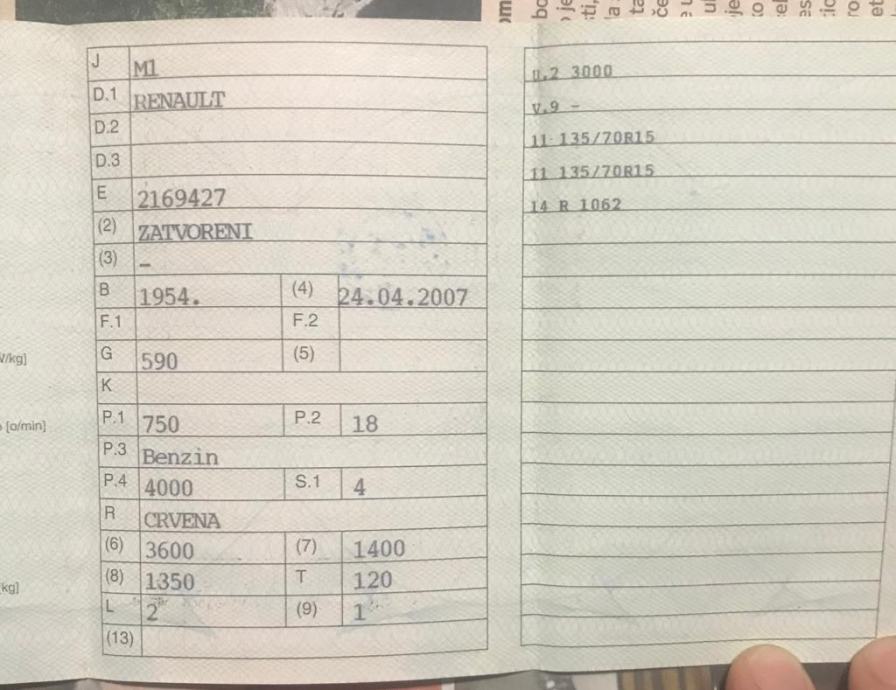 J M1
D.1 RENAULT
D.2
D.3
E 2169427
(2) ZATVORENI
(3) –
B 1954. (4) 24.04.2007
F.1 F.2
G 590 (5)
K
P.1 750 P.2 18
P.3 Benzin
P.4 4000 S.1 4
R CRVENA
(6) 3600 (7) 1400
(8) 1350 T 120
L 2 (9) 1
(13)
U.2 3000
V.9 –
11 135/70R15
11 135/70R15
14 R 1062
/kg]
[o/min]
kg]